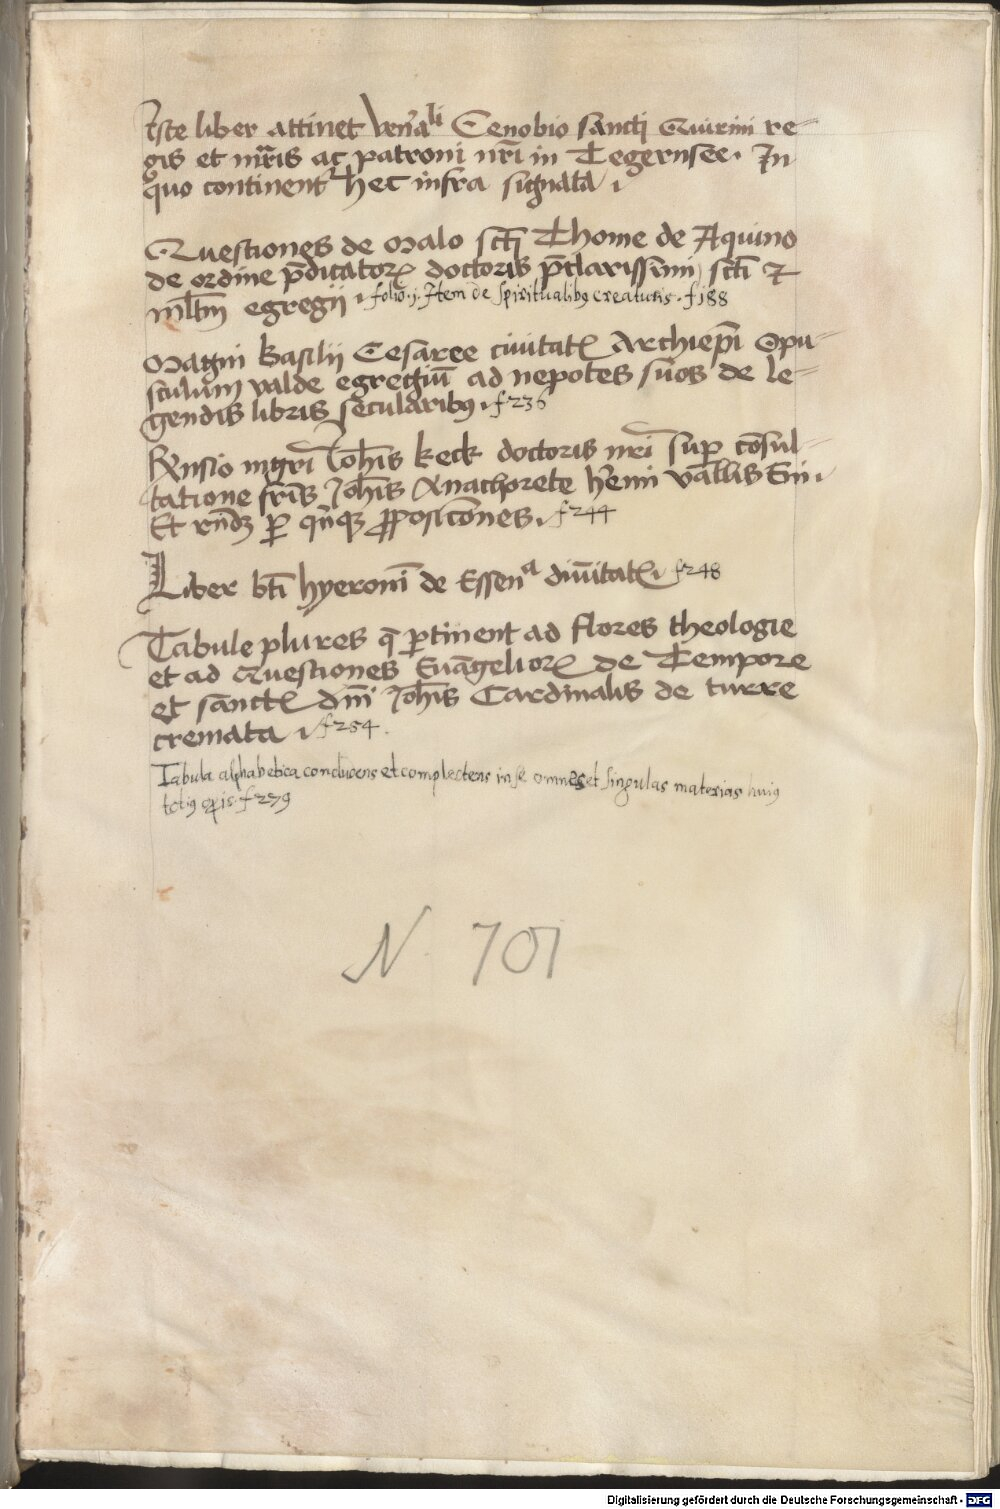 Iste liber attinet ven̄ali Cenobio sancti Quirini re=
gis et mr̄is ac patroni nr̄i in Tegernsee. In
quo continent᷑ hec infra signata.
Questiones de Malo sct̄i Thome de Aquino
de ordine p̄dicatorꝝ doctoris p̄clarissimi sct̄i et
mltm̄ egregij. folio .j. Item de spiritualibꝰ creaturis. f 188
Magni Basilij Cesaree ciuitatꝭ Archiepī Opu=
sculum valde egregiū ad nepotes suos de le=
gendis libris secularibꝰ. f 236
Rn̄sio mgr̄i Ioh̄is Keck doctoris nr̄i sup̄ cōsul=
tatione fr̄is Ioh̄is Anachorete h̄emi vallis
Et ꝑ ꝓposicōnes. f 244
Liber bt̄i hyeronimī de Essen̄a diuītatꝭ. f 248
Tabule plures q̄ ꝑtinent ad flores theologie
et ad Questiones Euāgeliorꝝ de Tempore
et sanctꝭ dn̄i Ioh̄is Cardinalis de turre
cremata. f 254.
Tabula alphabetica conducens et complectens in se omnes et singulas materias huiꝰ
totiꝰ oꝑis. f 279
N. 701
Digitalisierung gefördert durch die Deutsche Forschungsgemeinschaft - DFG